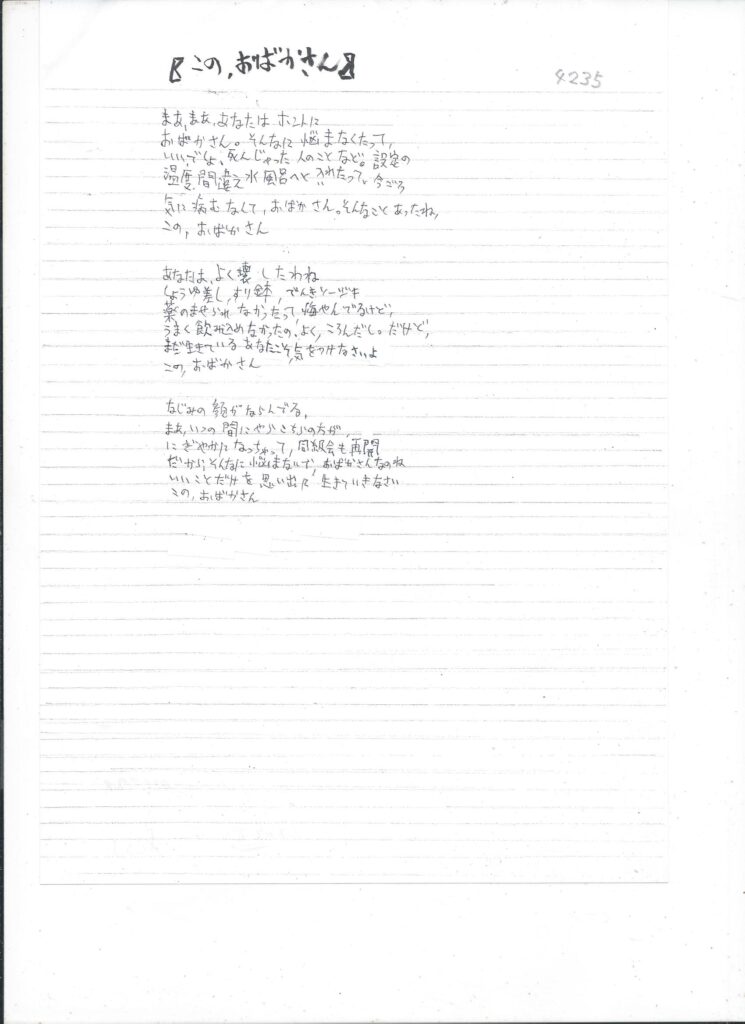 【この,おばかさん】
4235
まあ,まあ,あなたは ホントに
おばかさん。そんなに 悩まなくたって,
いいでしょ,死んじゃった 人のことなど。設定の
温度,間違え 水風呂へと 入れたって,今ごろ
気に病むなんて,おばかさん。そんなこと あったね,
この,おばかさん
あなたは,よく壊したわね
しょうゆ差し,すり鉢,でんき
薬のませられ なかったって,悔やんでるけど,
うまく飲み込めなかったの,よく,ころんだし。だけど,
まだ生きている あなたこそ,気をつけなさいよ
この,おばかさん
なじみの 顔がならんでる,
まあ,いつの 間にやら こちらの方が,
にぎやかに なっちゃって,同級会も再開
だから,そんなに 悩まないで,おばかさんなのね
いいことだけを 思い出し 生きていきなさい
この,おばかさん